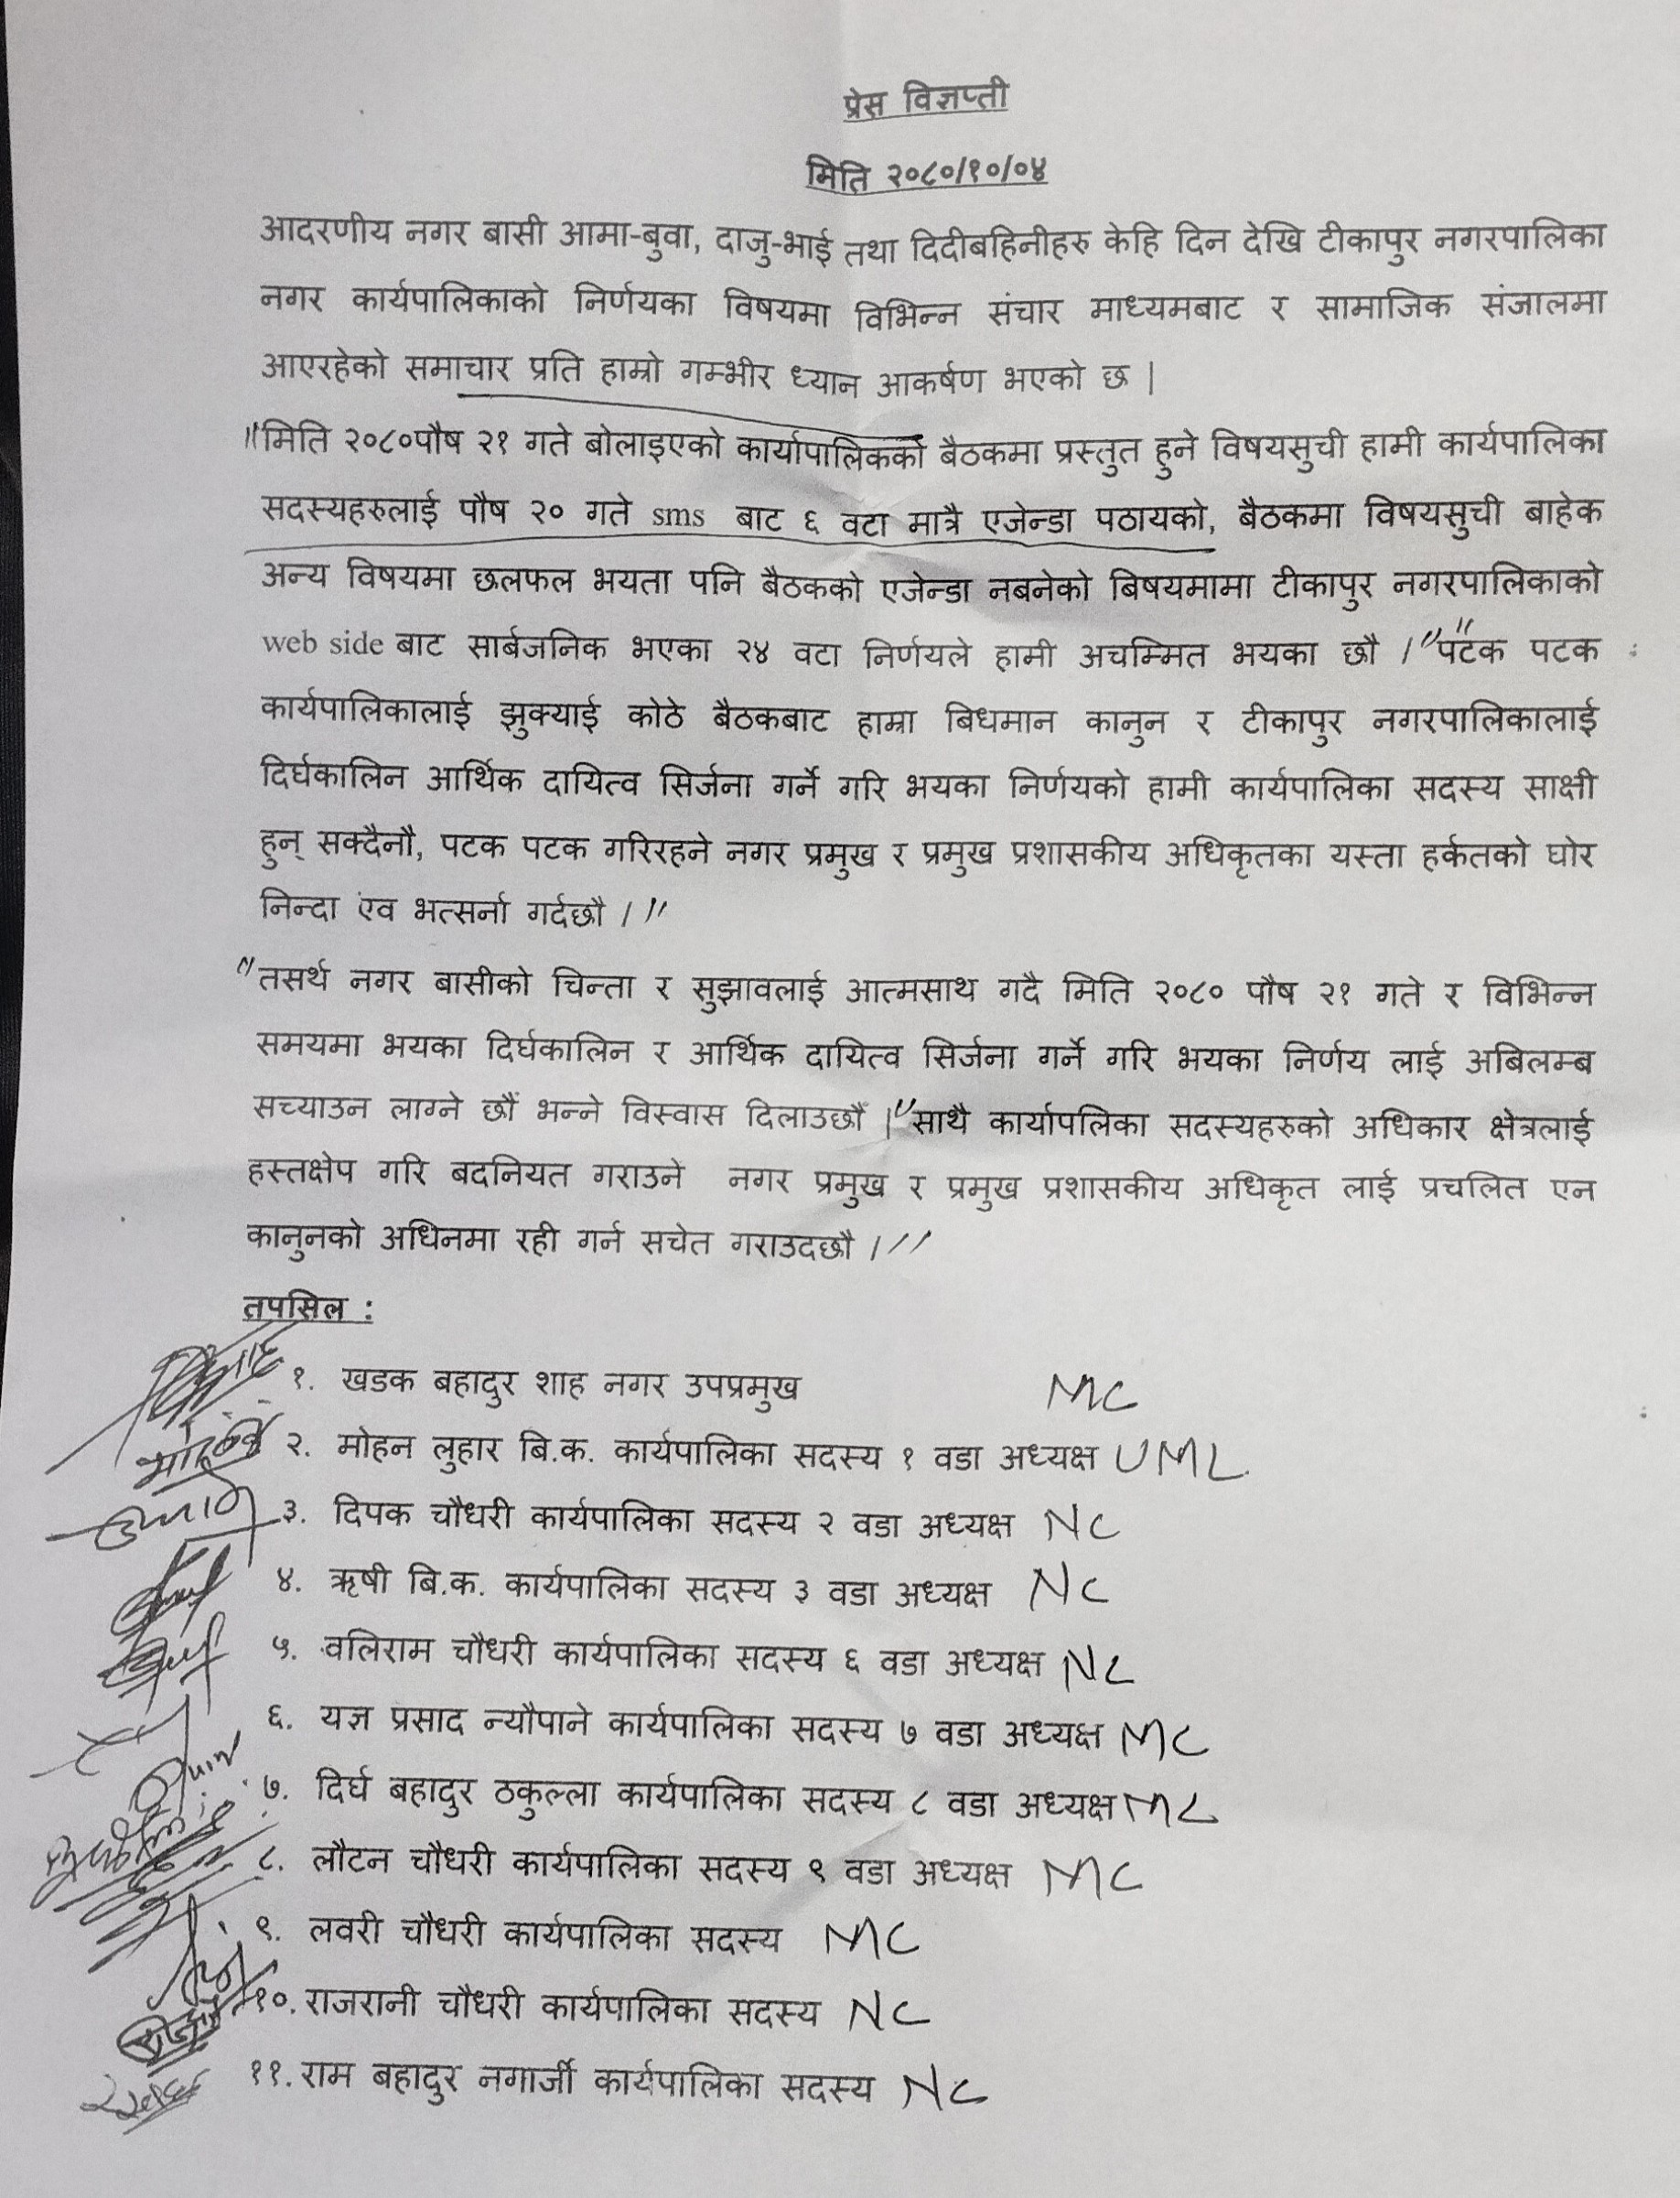 प्रेस विज्ञप्ती
मिति २०८०/१०/०४
आदरणीय नगर बासी आमा-बुवा, दाजु-भाई तथा दिदीबहिनीहरु केहि दिन देखि टीकापुर नगरपालिका
नगर कार्यपालिकाको निर्णयका विषयमा विभिन्न संचार माध्यमबाट र सामाजिक संजालमा
आएरहेको समाचार प्रति हाम्रो गम्भीर ध्यान आकर्षण भएको छ |
"मिति २०८०पौष २१ गते बोलाइएको कार्यापालिकको बैठकमा प्रस्तुत हुने विषयसुची हामी कार्यपालिका
सदस्यहरुलाई पौष २० गते sms बाट ६ वटा मात्रै एजेन्डा पठायको, बैठकमा विषयसुची बाहेक
अन्य विषयमा छलफल भयता पनि बैठकको एजेन्डा नबनेको बिषयमामा टीकापुर नगरपालिकाको
web side बाट सार्बजनिक भएका २४ वटा निर्णयले हामी अचम्मित भयका छौ ।" "पटक पटक
कार्यपालिकालाई झुक्याई कोठे बैठकबाट हाम्रा बिधमान कानुन र टीकापुर नगरपालिकालाई
दिर्घकालिन आर्थिक दायित्व सिर्जना गर्ने गरि भयका निर्णयको हामी कार्यपालिका सदस्य साक्षी
हुन् सक्दैनौ, पटक पटक गरिरहने नगर प्रमुख र प्रमुख प्रशासकीय अधिकृतका यस्ता हर्कतको घोर
निन्दा एंव भत्सर्ना गर्दछौ ।"
"तसर्थ नगर बासीको चिन्ता र सुझावलाई आत्मसाथ गदै मिति २०८० पौष २१ गते र विभिन्न
समयमा भयका दिर्घकालिन र आर्थिक दायित्व सिर्जना गर्ने गरि भयका निर्णय लाई अबिलम्ब
सच्याउन लाग्ने छौं भन्ने विस्वास दिलाउछौं |" साथै कार्यापलिका सदस्यहरुको अधिकार क्षेत्रलाई
हस्तक्षेप गरि बदनियत गराउने नगर प्रमुख र प्रमुख प्रशासकीय अधिकृत लाई प्रचलित एन
कानुनको अधिनमा रही गर्न सचेत गराउदछौ ।"
तपसिल :
१. खडक बहादुर शाह नगर उपप्रमुख MC
२. मोहन लुहार बि.क. कार्यपालिका सदस्य १ वडा अध्यक्ष UML
३. दिपक चौधरी कार्यपालिका सदस्य २ वडा अध्यक्ष NC
४. ऋषी बि.क. कार्यपालिका सदस्य ३ वडा अध्यक्ष NC
५. वलिराम चौधरी कार्यपालिका सदस्य ६ वडा अध्यक्ष NC
६. यज्ञ प्रसाद न्यौपाने कार्यपालिका सदस्य ७ वडा अध्यक्ष MC
७. दिर्घ बहादुर ठकुल्ला कार्यपालिका सदस्य ८ वडा अध्यक्ष MC
८. लौटन चौधरी कार्यपालिका सदस्य ९ वडा अध्यक्ष MC
९. लवरी चौधरी कार्यपालिका सदस्य MC
१०. राजरानी चौधरी कार्यपालिका सदस्य NC
११. राम बहादुर नगार्जी कार्यपालिका सदस्य NC